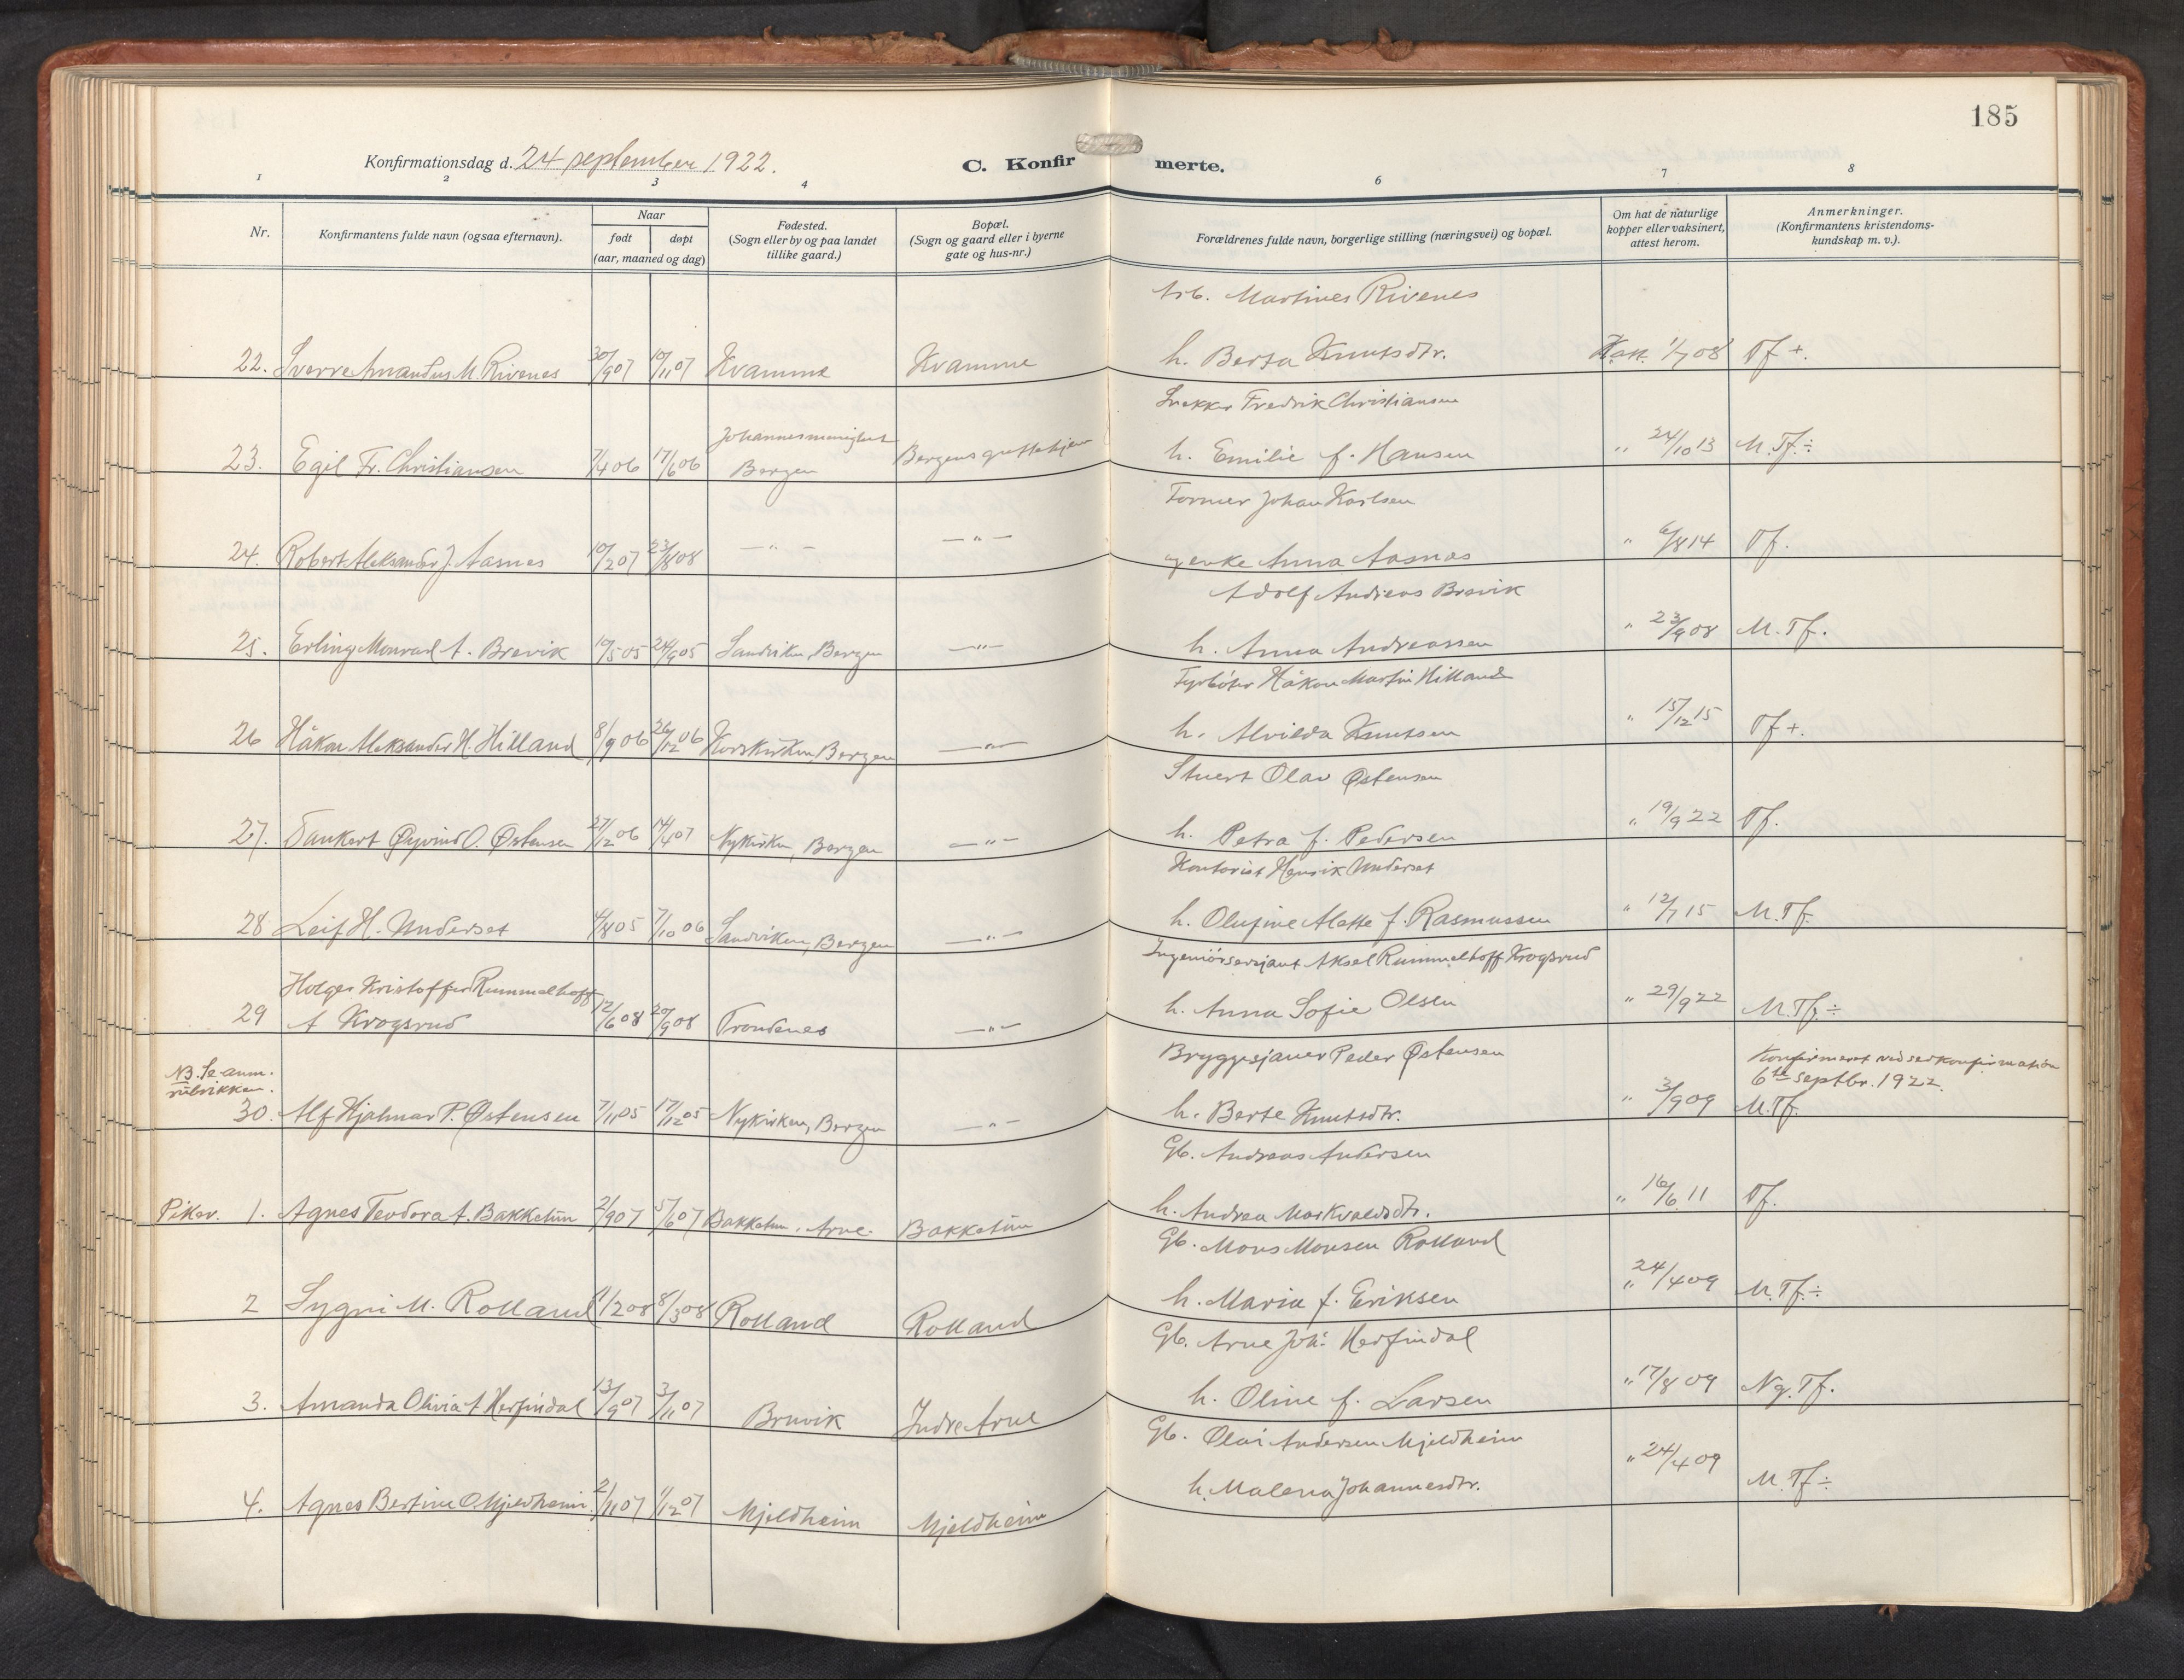 185
Konfirmationsdag d. 24 september 1922.
C. Konfirmerte.
1 2 3 4 6 7 8
Nr.
Konfirmantens fulde navn (ogsaa efternavn).
Naar
født døpt
(aar, maaned og dag)
Fødested.
(Sogn eller by og paa landet
tillike gaard.)
Bopæl.
(Sogn og gaard eller i byerne
gate og hus-nr.)
Forældrenes fulde navn, borgerlige stilling (næringsvei) og bopæl.
Om hat de naturlige
kopper eller vaksinert,
attest herom.
Anmerkninger.
(Konfirmantens kristendoms-
kundskap m. v.).
Arb. Martines Rivenes
22. Sverre Amandus M. Rivenes 30/9 07 10/11 07 Kvamme Kvamme h. Berta Knutsdtr. 1/7 08 Tf +.
Fredrik Christiansen
23. Egil Fr. Christiansen 7/4 06 17/6 06 Johannesmenighet Bergen Bergens guttehjem h. Emilie f. Hansen " 24/10 13 M. Tf. ÷
Former Johan Karlsen
24. Robert Aleksander J. Aasnes 10/2 07 23/8 08 — " — — " — Anna Aasnes " 6/8 14 Tf.
Adolf Andreas Brevik
25. Erling Monrad A. Brevik 10/5 05 24/9 05 Sandviken, Bergen — " — h. Anna Andreassen " 23/9 08 M. Tf.
Fyrbøter Håkon Martin Hilland
26 Håkon Aleksander H. Hilland 8/9 06 26/12 06 Korskirken, Bergen — " — h. Alvilda Knutsen " 15/12 15 Tf +.
Stuert Olav Østensen
27. Tankert Øyvind O. Østensen 27/12 06 14/4 07 Nykirken, Bergen — " — h. Petra f. Pedersen " 19/9 22 Tf.
Kontorist Henrik Underset
28 Leif H. Underset 4/8 05 7/10 06 Sandviken, Bergen — " — h. Olufine Alette f. Rasmussen " 12/7 15 M. Tf.
Ingeniørsersjant Aksel Rummelhoff Krogsrud
Holger Kristoffer Rummelhoff
29 A Krogsrud 12/6 08 20/9 08 Trondenes — " — h. Anna Sofie Olsen " 29/9 22 M. Tf. ÷
Bryggesjauer Peder Østensen
NB. Se anm.
rubrikken.
Konfirmeret ved serkonfirmation
6te septbr. 1922.
30. Alf Hjalmar P. Østensen 7/11 05 17/12 05 Nykirken, Bergen — " — h. Berte Knutsdtr. " 3/9 09 M. Tf.
Gb. Andreas Andersen
Piker. 1. Agnes Teodora A. Bakketun 2/9 07 5/6 07 Bakketun, Arne. Bakketun h. Andrea Markvaldsdtr. " 16/6 11 Tf.
Gb. Mons Monsen Rolland
2 Sygni M. Rolland 11/2 08 8/3 08 Rolland Rolland h. Maria f. Eriksen " 24/4 09 M. Tf. ÷
Gb. Arne Joh. Herfindal
3. Amanda Olivia A Herfindal 13/9 07 3/11 07 Bruvik Indre Arne h. Oline f. Larsen " 17/8 09 Ng. Tf.
Gb. Olai Andersen Mjeldheim
4. Agnes Bertine O. Mjeldheim. 2/11 07 1/12 07 Mjeldheim Mjeldheim h. Malena Johannesdtr. " 24/4 09 M. Tf ÷